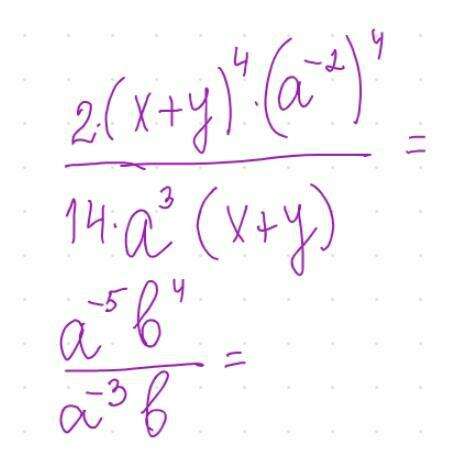 2·(x+y)⁴·(a⁻²)⁴
14·a³ (x+y)
=
a⁻⁵b⁴
a⁻³b
=